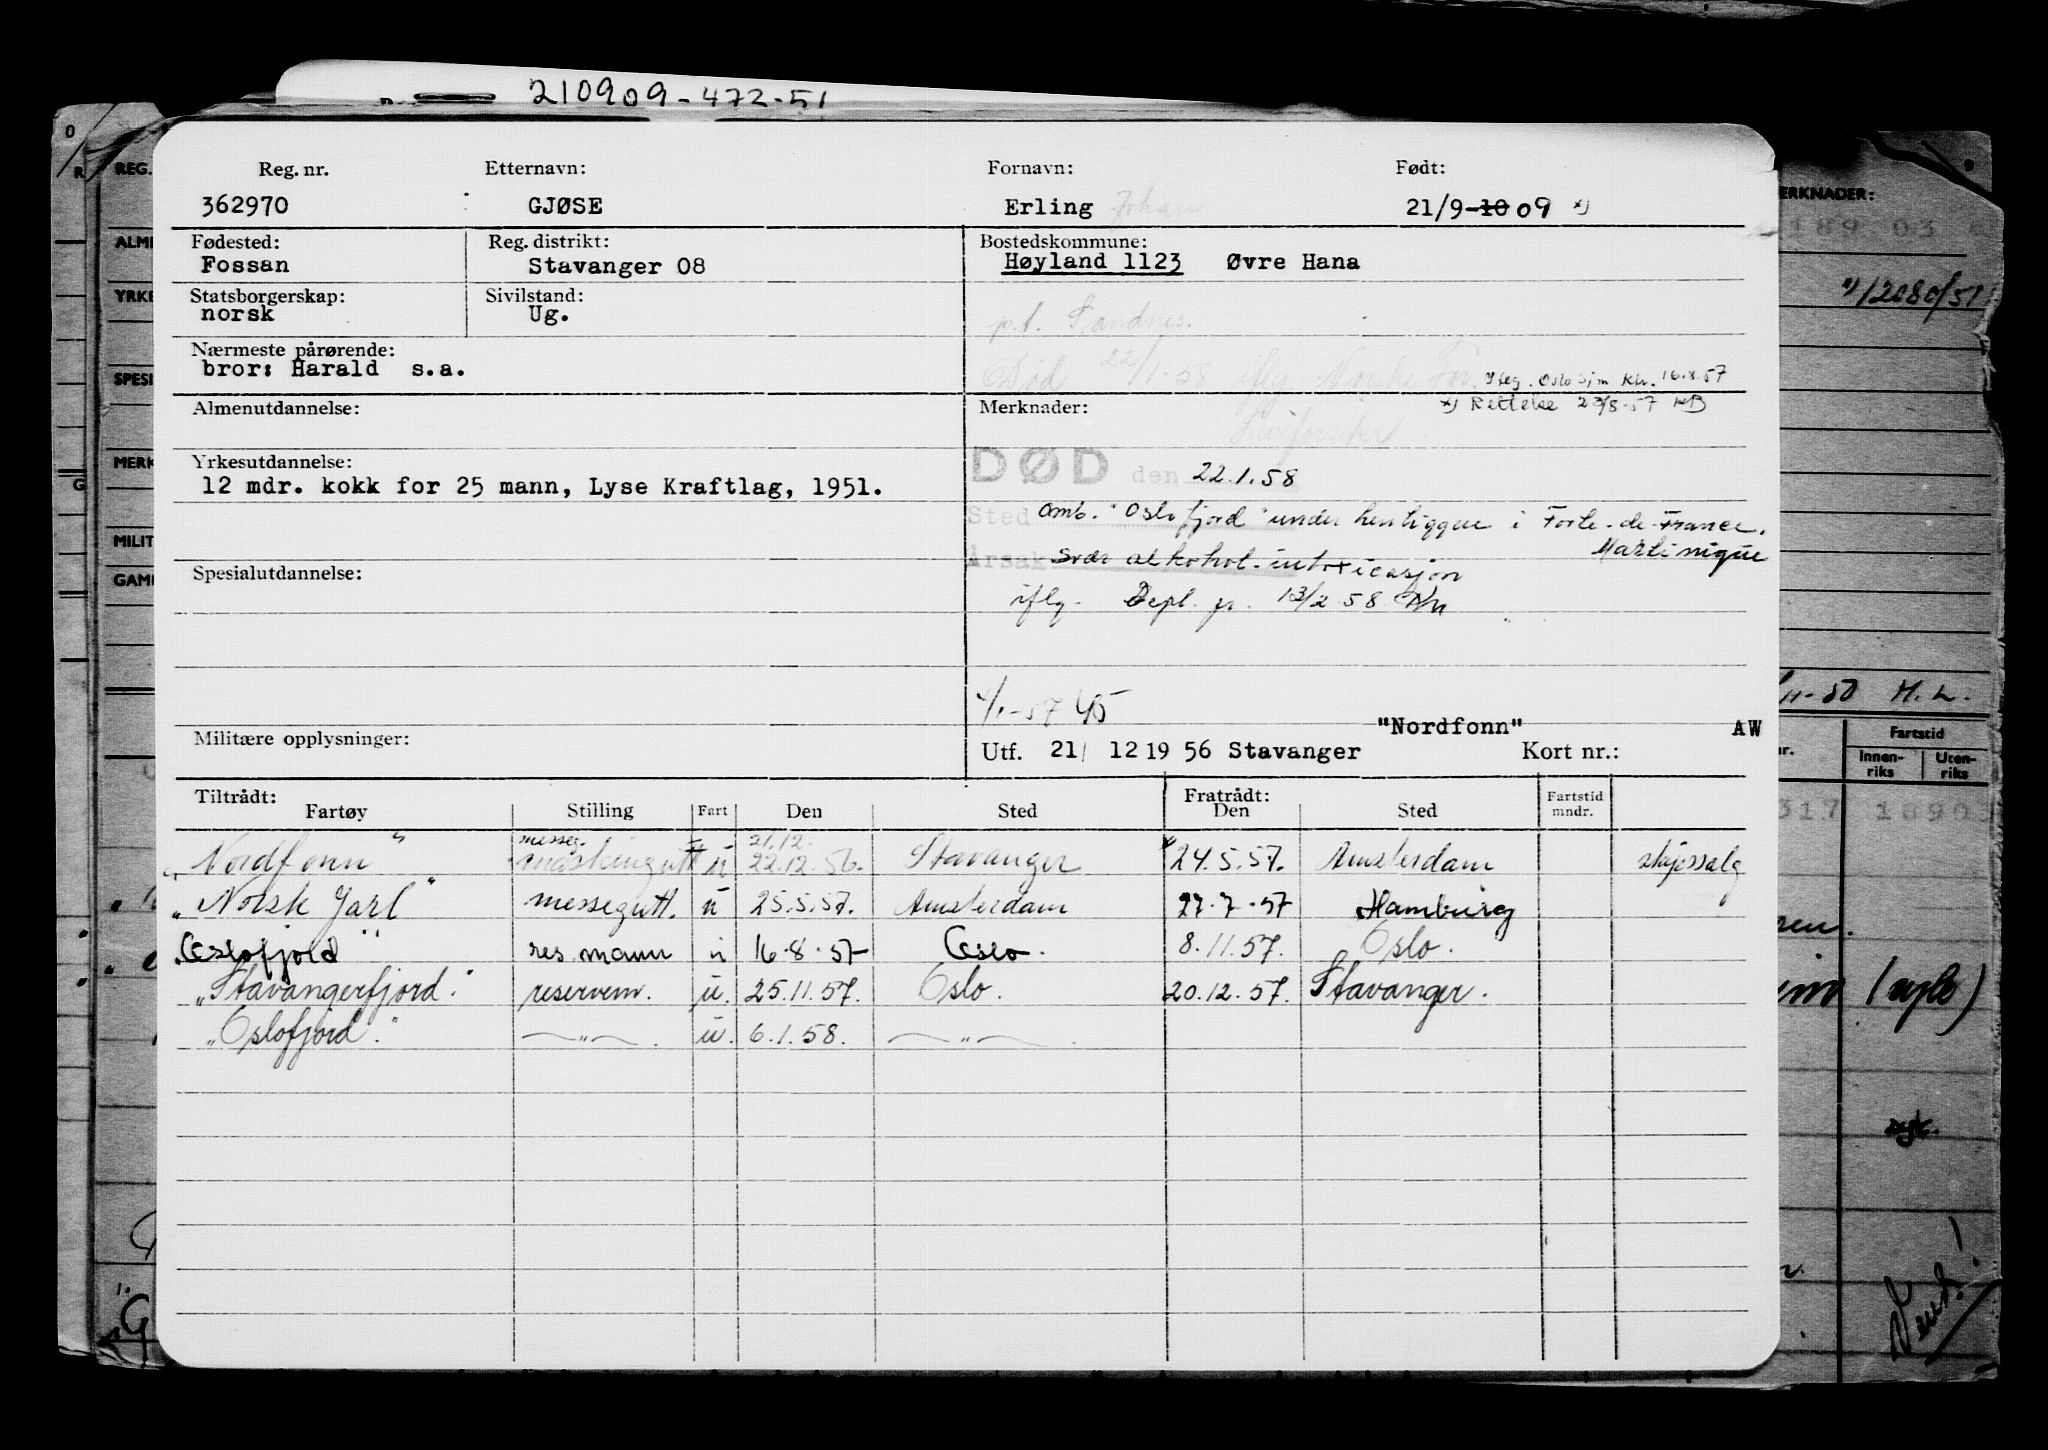 210909-472-51
Reg. nr. Etternavn: Fornavn: Født:
362970 GJØSE Erling Johan 21/9-10 09 x)
Fødested: Reg. distrikt: Bostedskommune:
Fossan Stavanger 08 Høyland 1123 Øvre Hana
Statsborgerskap: Sivilstand:
norsk Ug.
p.t. Sandnes.
Nærmeste pårørende:
bror: Harald s.a.
Død 22/1-58 iflg. Norske
iflg. Oslo Sjm Ktr. 16.8.57
Almenutdannelse: Merknader: x) Rettelse 23/8-57 KB
Yrkesutdannelse:
12 mdr. kokk for 25 mann, Lyse Kraftlag, 1951.
DØD den 22.1.58
Sted omb. "Oslofjord" under henliggen i Forte-de-France,
Martinique
Årsak Svær alkohol-intoxicasjon
iflg. Depl. pr. 13/2 58
Spesialutdannelse:
4/1-57 45
Militære opplysninger: "Nordfonn" AW
Utf. 21/ 12 19 56 Stavanger Kort nr.:
Tiltrådt: Fratrådt:
Fartøy Stilling Fart Den Sted Den Sted Fartstid mndr.
messeg. 21.12.
"Nordfonn" maskingutt u 22.12.56. Stavanger 24.5.57. Amsterdam skipssalg
"Norsk Jarl" messegutt. u 25.5.57. Amsterdam 27.7.57 Hamburg
"Oslofjord" res. mann u 16.8.57 Oslo. 8.11.57. Oslo.
"Stavangerfjord" reservem. u. 25.11.57. Oslo. 20.12.57. Stavanger.
"Oslofjord" —"— u. 6.1.58. —"—
REG.
ALM
YRKE
SPESI
MERK
MILIT
GAM
ERKNADER:
189 03
x) 12080/51
11-50 H. L.
nr. Fartstid
Innen-riks Uten-riks
317 18903